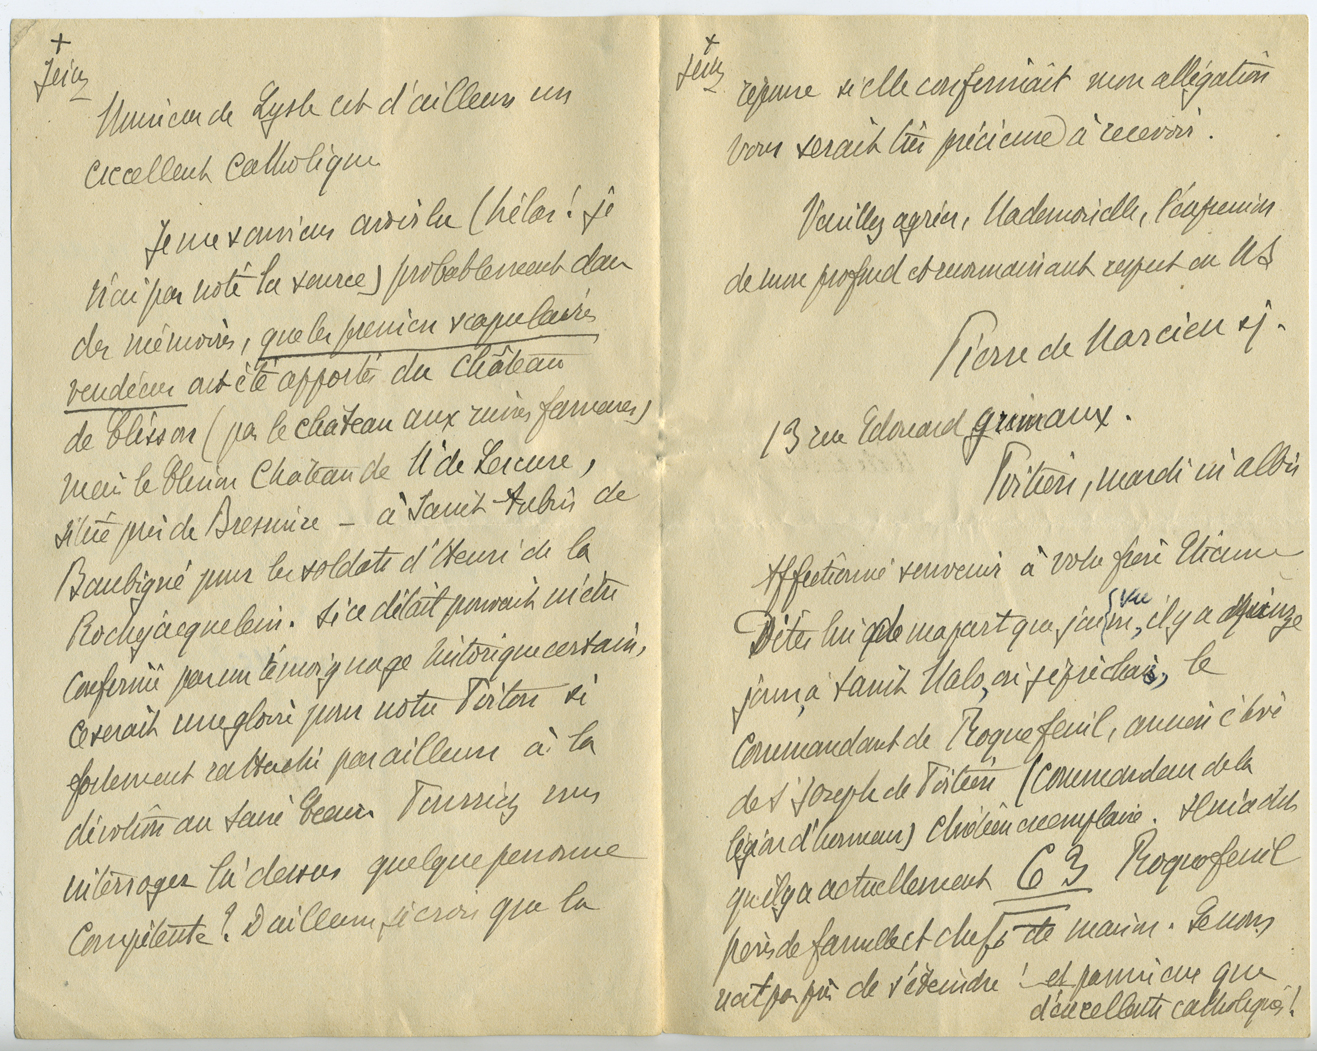 +
Jésus
Monsieur de Lysle est d'ailleurs un
excellent catholique
Je me souviens avoir lu (hélas ! je
n'ai pas noté la source) probablement dans
des mémoires, que les premiers scapulaires
vendéens ont été apportés du château
de Clisson (pas le château aux ruines fameuses)
mais le Clisson Château de M de Lescure,
situé près de Bressuire – à Saint Aubin de
Baubigné pour les soldats d'Henri de la
Rochejacquelein. Si ce détail pouvait m'être
confirmé par un témoignage historique certain,
ce serait une gloire pour notre Poitou si
fortement rattaché par ailleurs à la
dévotion au Sacré Coeur. Pourriez vous
interroger là dessus quelque personne
compétente ? D'ailleurs je crois que la
+
Jésus
réponse si elle confirmait mon allégation
vous serait très précieuse à recevoir.
Veuillez agréer, Mademoiselle, l'expression
de mon profond et reconnaissant respect en NS
Pierre de Marcieu sj.
13 rue Edouard Grimaux.
Poitiers, mardi in albis
Affectionné souvenir à votre frère Etienne
Dites lui de ma part que j'ai vu, il y a quinze
jours, à Saint Malo, où je prêchais, le
Commandant de Roquefeuil, ancien élève
de St Joseph de Poitiers (Commandeur de la
légion d'honneur) chrétien exemplaire. Il m'a dit
qu'il y a actuellement 63 Roquefeuil
pères de famille et chefs de maison. Le nom
n'est pas près de s'éteindre ! et parmi eux que
d'excellents catholiques !